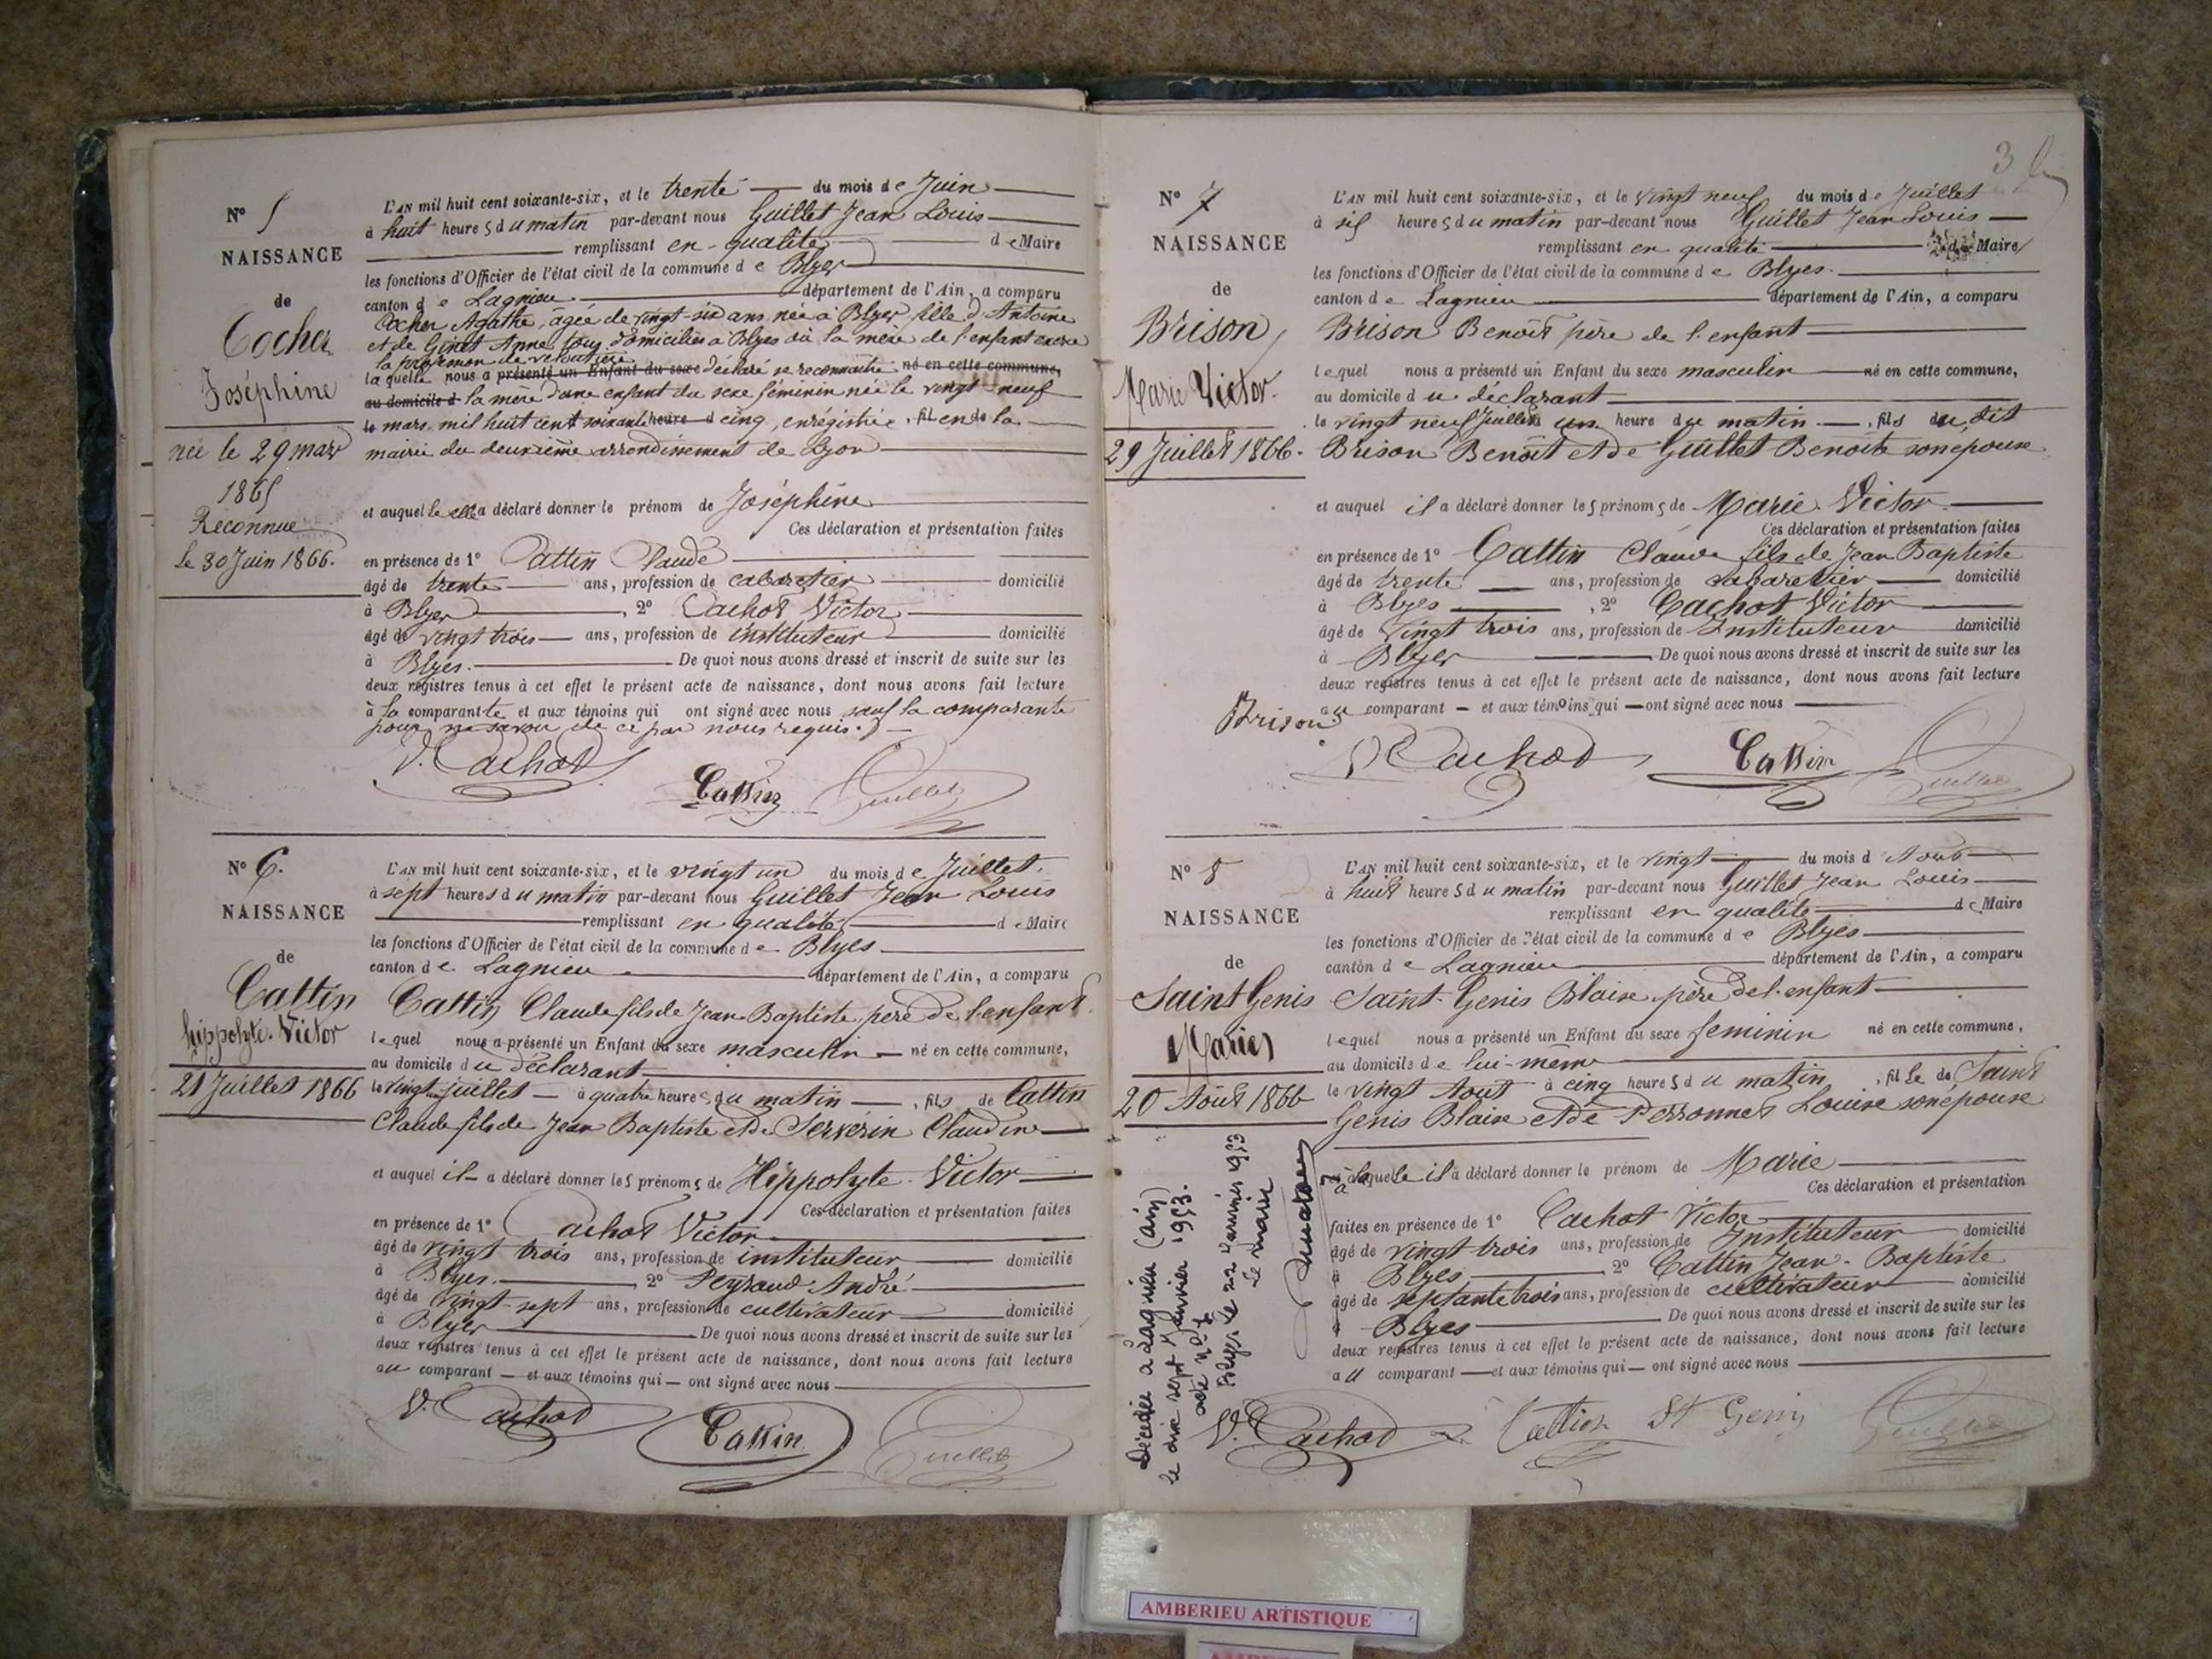 N° 5
NAISSANCE
de
Cocher
Joséphine
née le 29 mars
1865
Reconnue
le 30 Juin 1866.
L'AN mil huit cent soixante-six, et le trente du mois de Juin
à huit heures du matin par-devant nous Guillet Jean Louis
remplissant en qualité de Maire
les fonctions d'Officier de l'état civil de la commune de Blyes
canton de Lagnieu département de l'Ain, a comparu
Cocher Agathe, âgée de vingt-six ans, née à Blyes fille d'Antoine
et de Ginet Anne, tous domiciliés à Blyes où la mère de l'enfant exerce
la profession de veloutière
laquelle nous a présenté un Enfant du sexe déclaré se reconnaitre né en cette commune,
au domicile d la mère d'une enfant du sexe féminin née le vingt neuf
le mars mil huit cent soixante heure d cinq, enrégistrée, fil en de la
mairie du deuxième arrondissement de Lyon
et auquel le elle a déclaré donner le prénom de Joséphine
Ces déclaration et présentation faites
en présence de 1° Cattin Claude
âgé de trente ans, profession de cabaretier domicilié
à Blyes, 2° Cachot Victor
âgé de vingt trois ans, profession de instituteur domicilié
à Blyes. De quoi nous avons dressé et inscrit de suite sur les
deux registres tenus à cet effet le présent acte de naissance, dont nous avons fait lecture
à la comparante et aux témoins qui ont signé avec nous sauf la comparante
pour ne savoir de ce par nous requis.
V. Cachod Cattin Guillet
N° 6.
NAISSANCE
de
Cattin
hippolyte-Victor
21 Juillet 1866
L'AN mil huit cent soixante-six, et le vingt un du mois de Juillet.
à sept heures du matin par-devant nous Guillet Jean Louis
remplissant en qualité de Maire
les fonctions d'Officier de l'état civil de la commune de Blyes
canton de Lagnieu département de l'Ain, a comparu
Cattin Claude fils de Jean Baptiste père de l'enfant
lequel nous a présenté un Enfant du sexe masculin né en cette commune,
au domicile du déclarant
le vingt un juillet à quatre heures du matin, fils de Cattin
Claude fils de Jean Baptiste et de Serverin Claudine
et auquel il a déclaré donner les prénoms de Hippolyte Victor
Ces déclaration et présentation faites
en présence de 1° Cachot Victor
âgé de vingt trois ans, profession de instituteur domicilié
à Blyes. 2° Peysaud André
âgé de vingt-sept ans, profession de cultivateur domicilié
à Blyes De quoi nous avons dressé et inscrit de suite sur les
deux registres tenus à cet effet le présent acte de naissance, dont nous avons fait lecture
au comparant et aux témoins qui ont signé avec nous
V. Cachod Cattin Guillet
3
N° 7
NAISSANCE
de
Brison
Marie Victor.
29 Juillet 1866.
L'AN mil huit cent soixante-six, et le vingt neuf du mois de Juillet
à six heures du matin par-devant nous Guillet Jean Louis
remplissant en qualité de Maire
les fonctions d'Officier de l'état civil de la commune de Blyes.
canton de Lagnieu département de l'Ain, a comparu
Brison Benoît père de l'enfant
lequel nous a présenté un Enfant du sexe masculin né en cette commune,
au domicile du déclarant
le vingt neuf Juillet à un heure du matin, fils du dit
Brison Benoît et de Guillet Benoite son épouse
et auquel il a déclaré donner les prénoms de Marie Victor
Ces déclaration et présentation faites
en présence de 1° Cattin Claude fils de Jean Baptiste
âgé de trente ans, profession de cabaretier domicilié
à Blyes, 2° Cachot Victor
âgé de vingt trois ans, profession de Instituteur domicilié
à Blyes De quoi nous avons dressé et inscrit de suite sur les
deux registres tenus à cet effet le présent acte de naissance, dont nous avons fait lecture
au comparant et aux témoins qui ont signé avec nous
Brison
V. Cachod Cattin Guillet
N° 8
NAISSANCE
de
Saint Genis
Marie
20 Août 1866
Décédée à Lagnieu (Ain)
le dix sept Janvier 1953.
acte n° 4
Blyes le 22 Janvier 1953
Le maire
L'AN mil huit cent soixante-six, et le vingt du mois d'Aout
à huit heures du matin par-devant nous Guillet Jean Louis
remplissant en qualité de Maire
les fonctions d'Officier de l'état civil de la commune de Blyes
canton de Lagnieu département de l'Ain, a comparu
Saint-Genis Blaise père de l'enfant
lequel nous a présenté un Enfant du sexe feminin né en cette commune,
au domicile de lui-même
le vingt Aout à cinq heures du matin, fille de Saint
Genis Blaise et de Perronnet Louise son épouse
à laquelle il a déclaré donner le prénom de Marie
Ces déclaration et présentation
faites en présence de 1° Cachot Victor
âgé de vingt trois ans, profession de Instituteur domicilié
à Blyes 2° Cattin Jean-Baptiste
âgé de septante trois ans, profession de cultivateur domicilié
à Blyes De quoi nous avons dressé et inscrit de suite sur les
deux registres tenus à cet effet le présent acte de naissance, dont nous avons fait lecture
au comparant et aux témoins qui ont signé avec nous
V. Cachod Cattin St Genis Guillet
AMBERIEU ARTISTIQUE